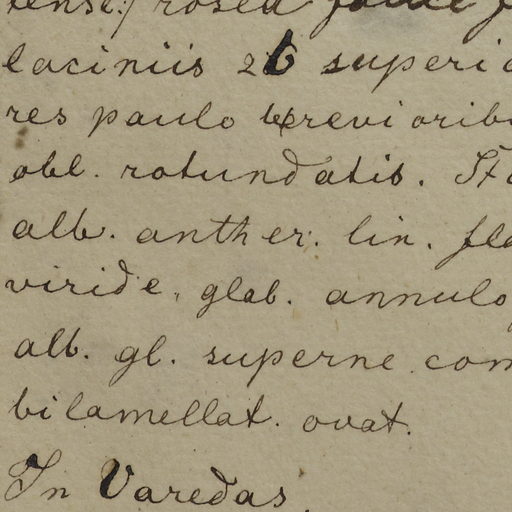 rosea fauce
laciniis 2 superi
res paulo brevioribu
obl. rotundatis. St
alb. anther. lin. fl
viride, glab. annulo
alb. gl. superne com
bilamellat. ovat.
In Varedas.